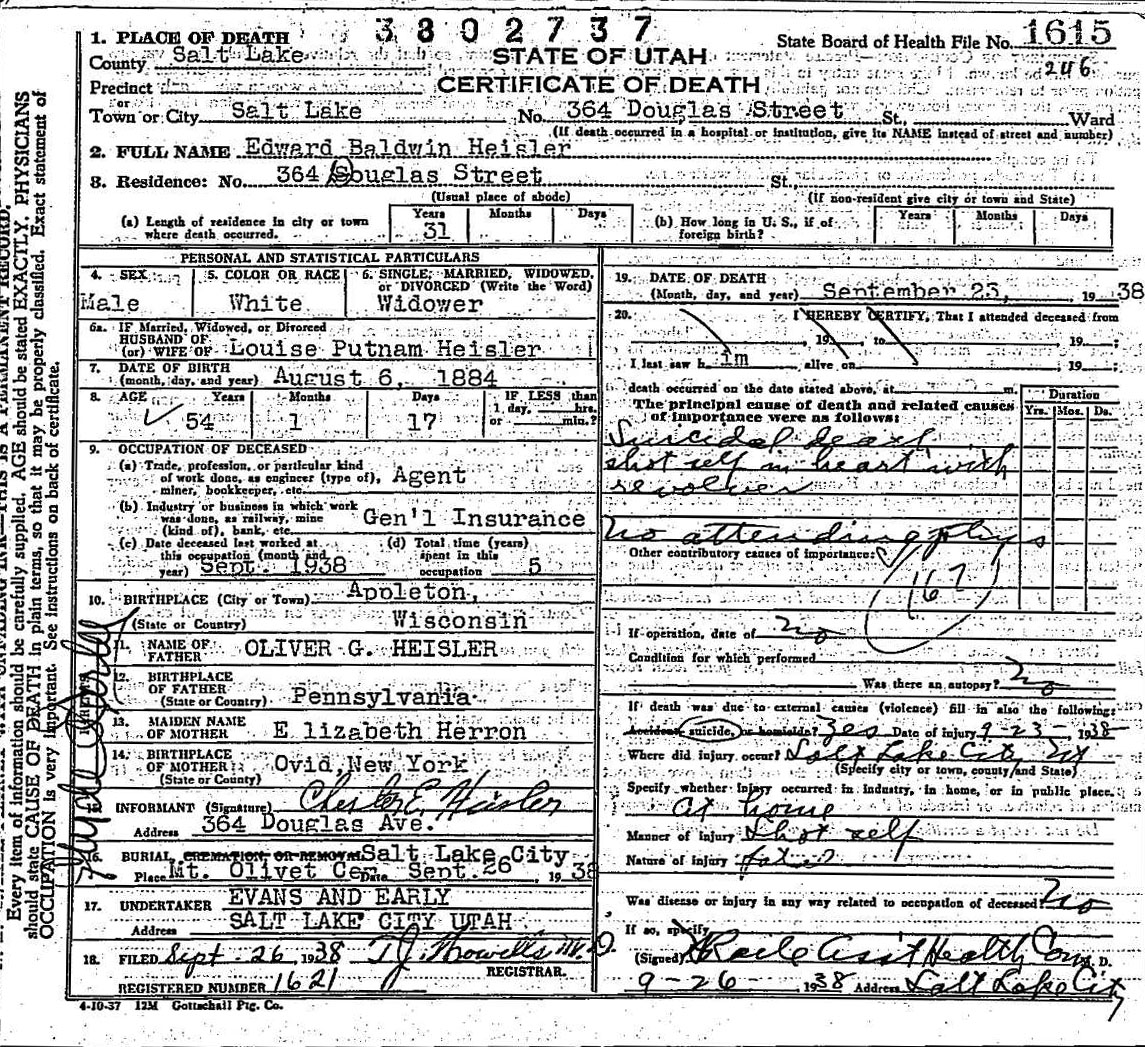 3802737
1615
State Board of Health File No.
246
1. PLACE OF DEATH
STATE OF UTAH
CERTIFICATE OF DEATH
County Salt Lake
Precinct
or
Town or City Salt Lake No. 364 Douglas Street St., Ward
(If death occurred in a hospital or institution, give its NAME instead of street and number)
2. FULL NAME Edward Baldwin Heisler
3. Residence: No. 364 Douglas Street St.,
(Usual place of abode) (If non-resident give city or town and State)
(a) Length of residence in city or town where death occurred. Years 31 Months Days
(b) How long in U. S., if of foreign birth? Years Months Days
PERSONAL AND STATISTICAL PARTICULARS
4. SEX 5. COLOR OR RACE 6. SINGLE, MARRIED, WIDOWED, or DIVORCED (Write the Word)
Male White Widower
6a. IF Married, Widowed, or Divorced
HUSBAND OF
(or) WIFE OF Louise Putnam Heisler
7. DATE OF BIRTH
(month, day, and year) August 6, 1884
8. AGE Years Months Days IF LESS than
1 day, hrs.
or min.?
54 1 17
9. OCCUPATION OF DECEASED
(a) Trade, profession, or particular kind
of work done, as engineer (type of), Agent
miner, bookkeeper, etc.
(b) Industry or business in which work
was done, as railway, mine Gen'l Insurance
(kind of), bank, etc.
(c) Date deceased last worked at (d) Total time (years)
this occupation (month and spent in this
year) Sept. 1938 occupation 5
10. BIRTHPLACE (City or Town) Appleton,
(State or Country) Wisconsin
11. NAME OF
FATHER OLIVER G. HEISLER
12. BIRTHPLACE
OF FATHER
(State or Country) Pennsylvania
13. MAIDEN NAME
OF MOTHER Elizabeth Herron
14. BIRTHPLACE
OF MOTHER Ovid New York
(State or County)
15. INFORMANT (Signature) Chester E. Heisler
Address 364 Douglas Ave.
16. BURIAL, CREMATION, OR REMOVAL Salt Lake City
Place Mt. Olivet Cem Date Sept. 26, 1938
17. UNDERTAKER EVANS AND EARLY
Address SALT LAKE CITY UTAH
18. FILED Sept 26, 1938 T J Howells M.D.
REGISTRAR.
REGISTERED NUMBER 1621
4-10-37 12M Gottschall Ptg. Co.
19. DATE OF DEATH
(Month, day, and year) September 23, 1938
20. I HEREBY CERTIFY, That I attended deceased from
, 19 , to 19 ;
I last saw him alive on 19 ;
death occurred on the date stated above, at m.
The principal cause of death and related causes
of importance were as follows:
Duration
Yrs. Mos. Ds.
Suicidal death
shot self in heart with
revolver
No attending phys
Other contributory causes of importance:
167
If operation, date of no
Condition for which performed
Was there an autopsy? no
If death was due to external causes (violence) fill in also the following:
Accident, suicide, or homicide? Yes Date of injury 9-23-, 1938
Where did injury occur? Salt Lake City Ut
(Specify city or town, county and State)
Specify whether injury occurred in industry, in home, or in public place.
at home
Manner of injury Shot self
Nature of injury
Was disease or injury in any way related to occupation of deceased? No
If so, specify
(Signed) Ass't Health Com M. D.
9-26- 1938 Address Salt Lake City
THIS IS A PERMANENT RECORD.
Every item of information should be carefully supplied. AGE should be stated EXACTLY. PHYSICIANS
should state CAUSE OF DEATH in plain terms, so that it may be properly classified. Exact statement of
OCCUPATION is very important. See instructions on back of certificate.